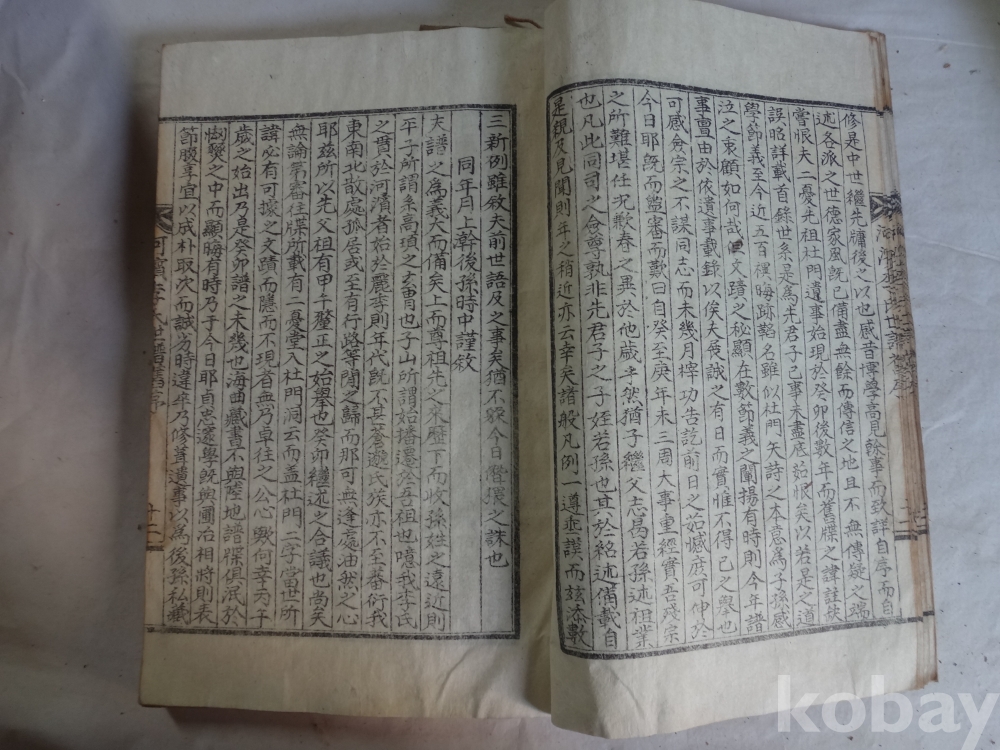 修是中世繼先牗後之以也感昔墫學高見幹事而致詳自序而自
述各派之世德家風旣已備盡無餘而傳信之地且不無傳疑之端
嘗恨夫二憂先祖杜門遺事始現於癸卯後數年而舊牒之諱註佚
誤昭詳載首錄世系是爲先君子已事未盡底茹恨矣以若是之道
學節義至今近五百禩晦跡韜名雖似杜門矢詩之本意爲子孫感
泣之衷顧如何哉 文蹟之秘顯在數節義之闡揚有時則今年譜
事亶由於依遺事載錄以俟夫展誠之有日而實惟不得已之擧也
可感僉宗之不謀同志而未幾月梓功告訖前日之茹憾庶可伸於
今日耶旣而鑑審而歎曰自癸至庚年未三周大事重經實吾殘宗
之所難堪任况歉春之畢於他歲乎然猶子繼父志曷若孫述祖業
也凡此同司之僉尊孰非先君子之子姪若孫也其於紹述備載自
是親及見聞則年之稍近亦云幸矣諸般凡例一遵乖謨而玆添數
三新例雖敘夫前世語及之事矣猶不免今日僭猥之誅也
同年同月上澣後孫時中謹敘
夫譜之爲義大而備矣上而尊祖先之來歷下而收孫姓之遠近則
平子所謂系高頊之玄胄也子山所謂始播遷於吾祖也噫我李氏
之貫於河濱者始於麗季則年代旣不甚
東南北散處孤居或至有行路等閒之歸而那可無逢
耶玆所以先父祖有甲午釐正之始擧也癸卯繼述之合議也尚矣
無論第審往牒所載有二憂堂入杜門洞云而盖杜門二字當世所
諱必有可據之文蹟而隱而不現者無乃卓往之公心歟何幸丙午
歲之始出乃是癸卯譜之未幾也海曲藏書不與陸地譜牒俱泯於
㓒燹之中而顯晦有時乃于今日耶自忠邃學旣與圃冶相將則表
節腹享宜以成朴取次而誠劣時違卒乃修葺遺事以爲後孫私藏